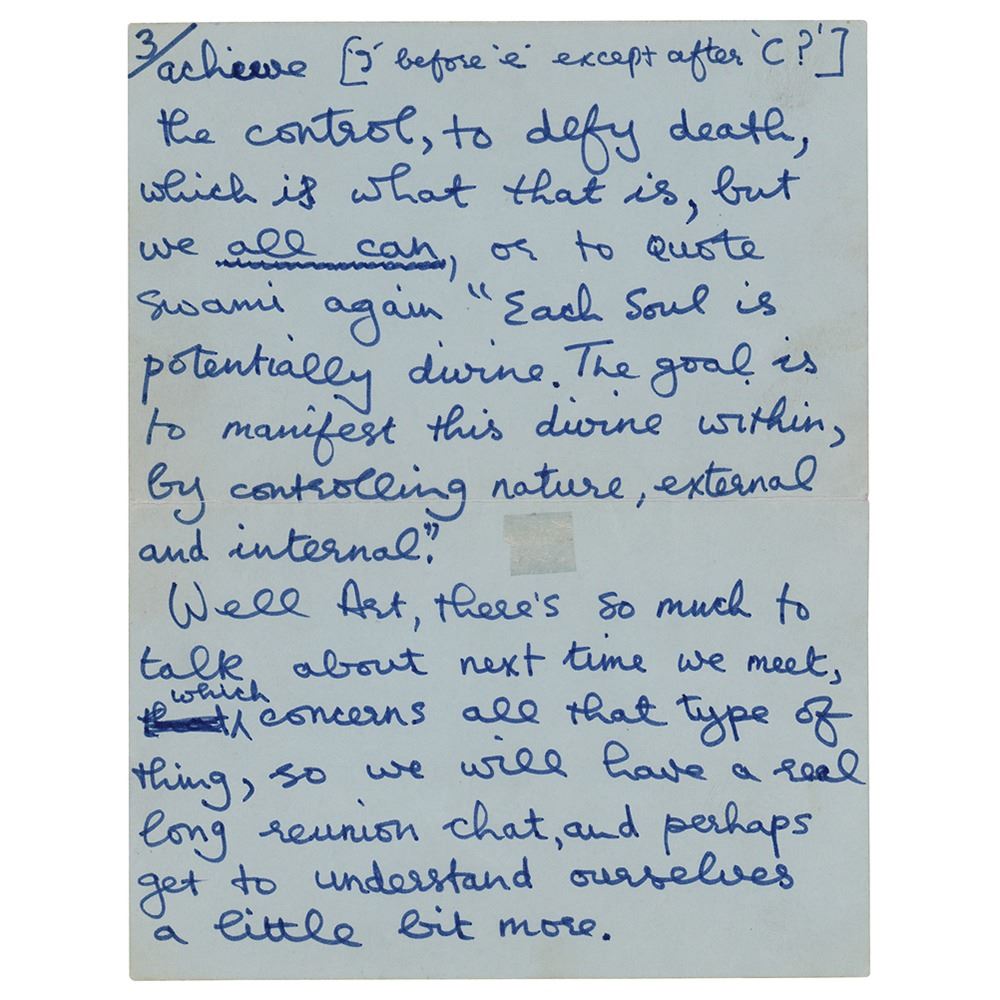 3/
achieve ['I' before 'e' except after 'C?']
the control, to defy death,
which is what that is, but
we all can, or to quote
Swami again "Each Soul is
potentially divine. The goal is
to manifest this divine within,
by controlling nature, external
and internal."
Well Art, there's so much to
talk about next time we meet,
which concerns all that type of
thing, so we will have a real
long reunion chat, and perhaps
get to understand ourselves
a little bit more.